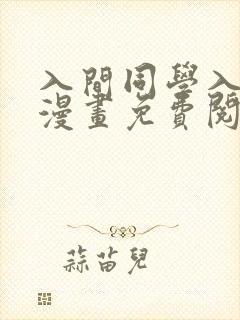 入間同學入
漫畫免費閱
蒜苗兒